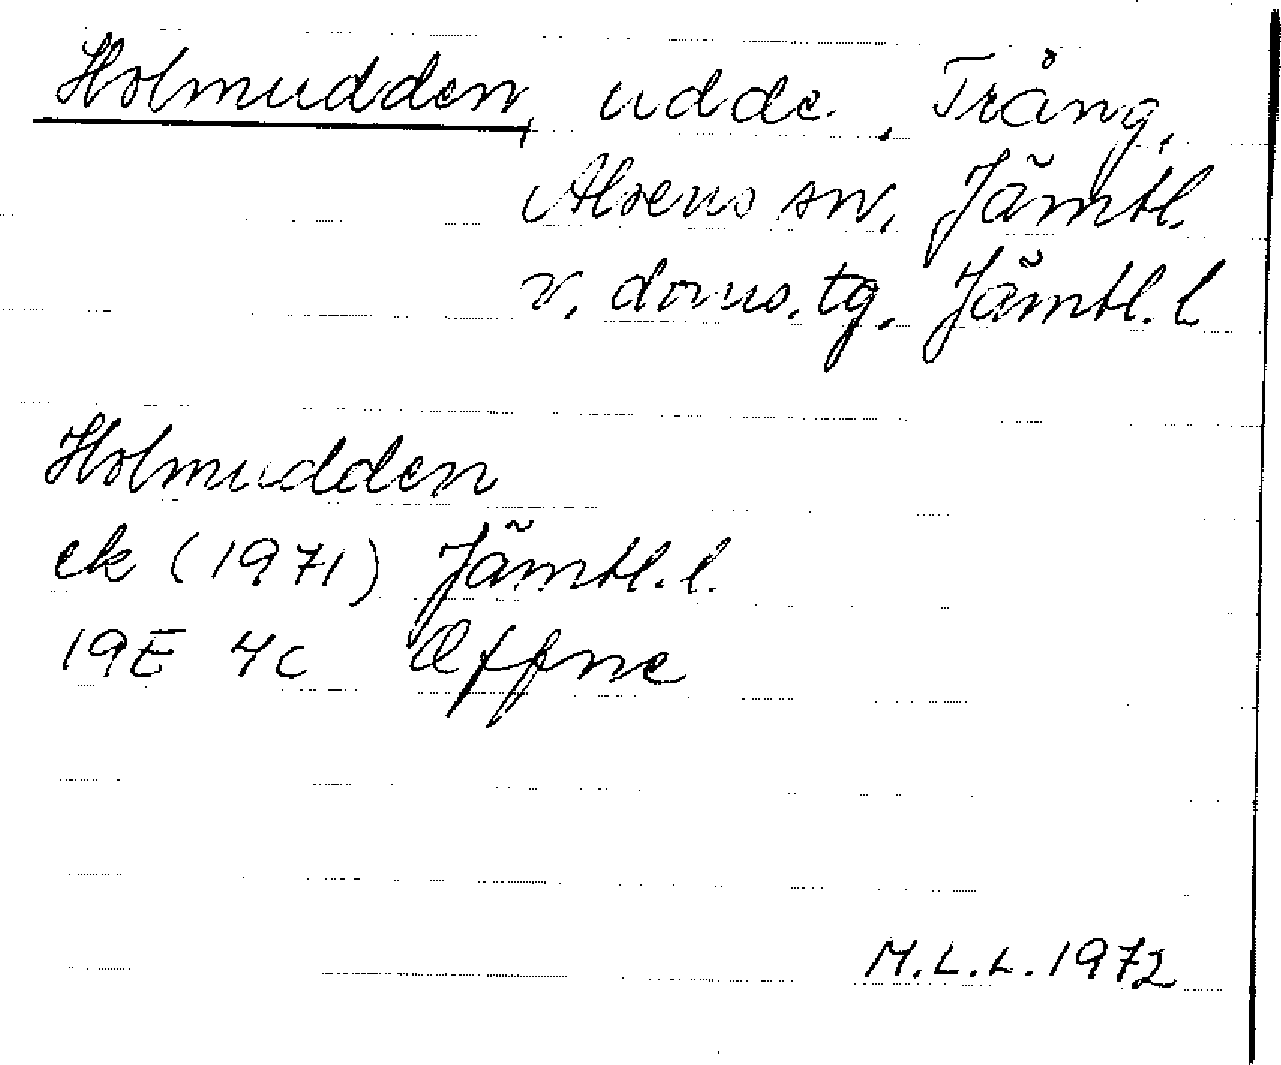 Holmudden, udde, Trång,
Alsens sn, Jämtl.
v. doms. tg. Jämtl. l
Holmudden
ek (1971) Jämtl. l.
19E 4c Offne
M.L.L. 1972